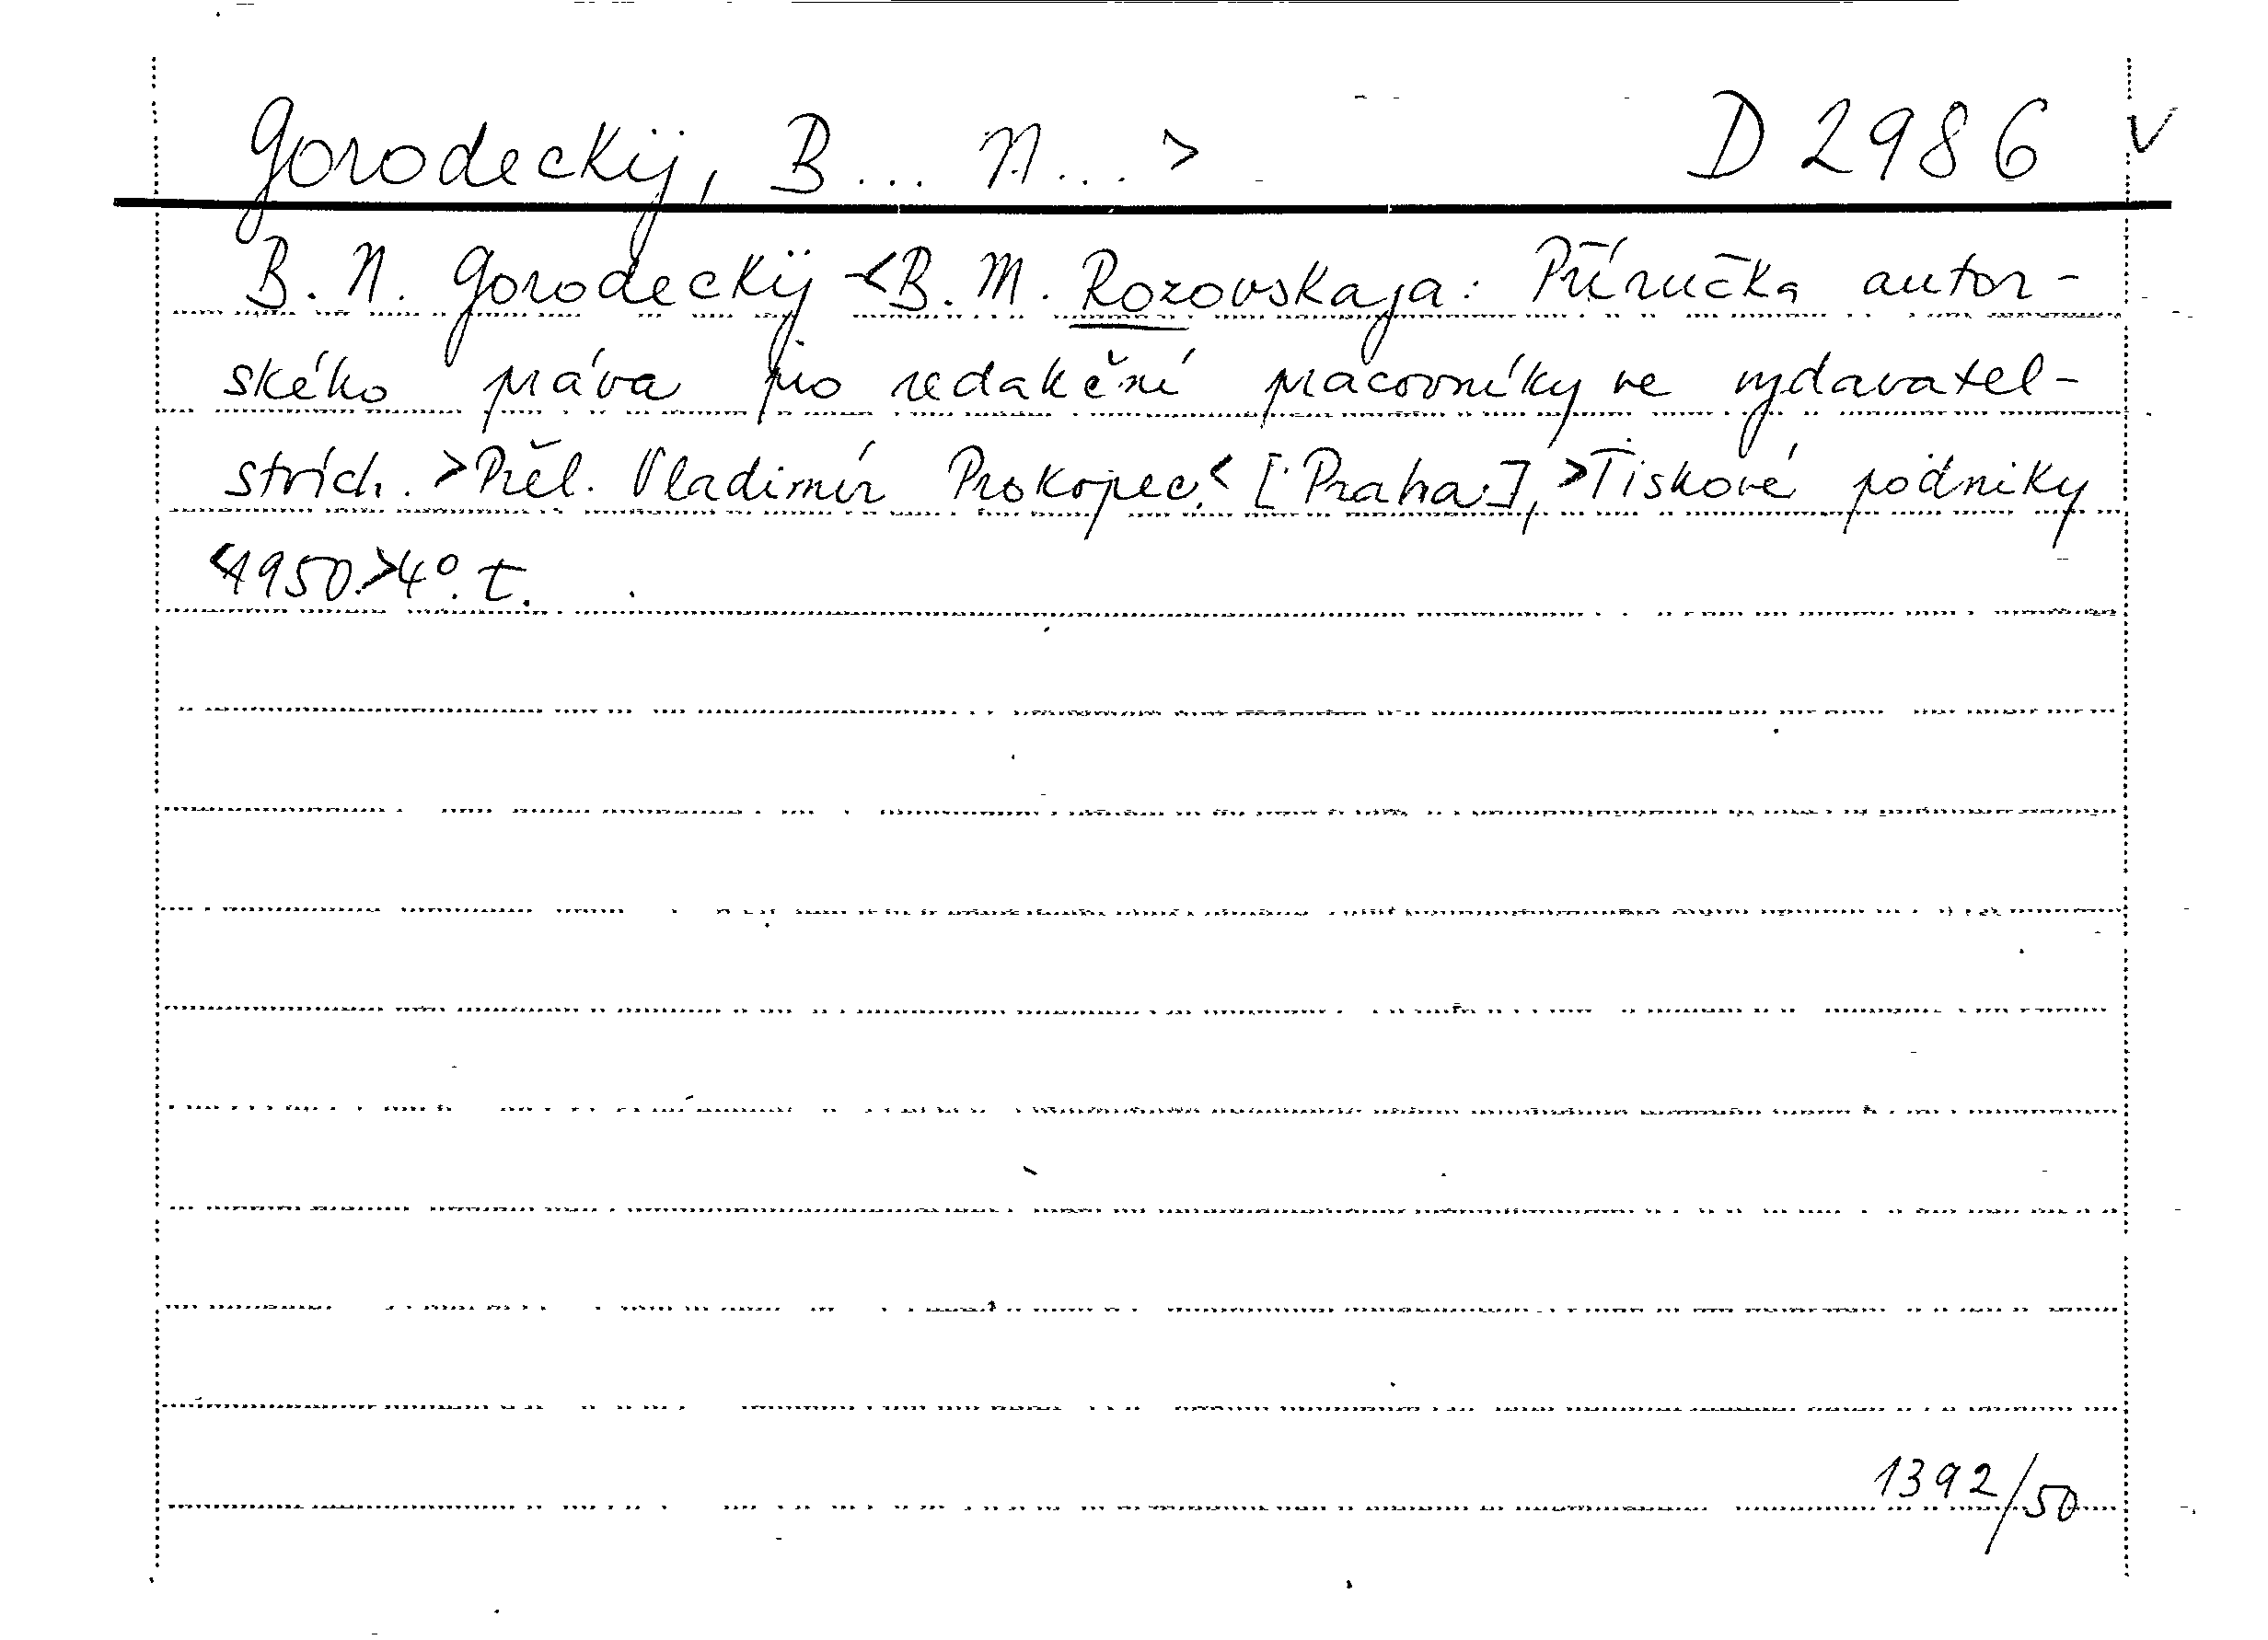 Gorodeckij, B... N... > D 2986 v
B. N. Gorodeckij < B. M. Rozovskaja: Příručka autor-
ského práva pro redakční pracovníky ve vydavatel-
stvích. > Přel. Vladimír Prokopec. < [Praha], > Tiskové podniky
<1950.> 4°. t.
1392/50